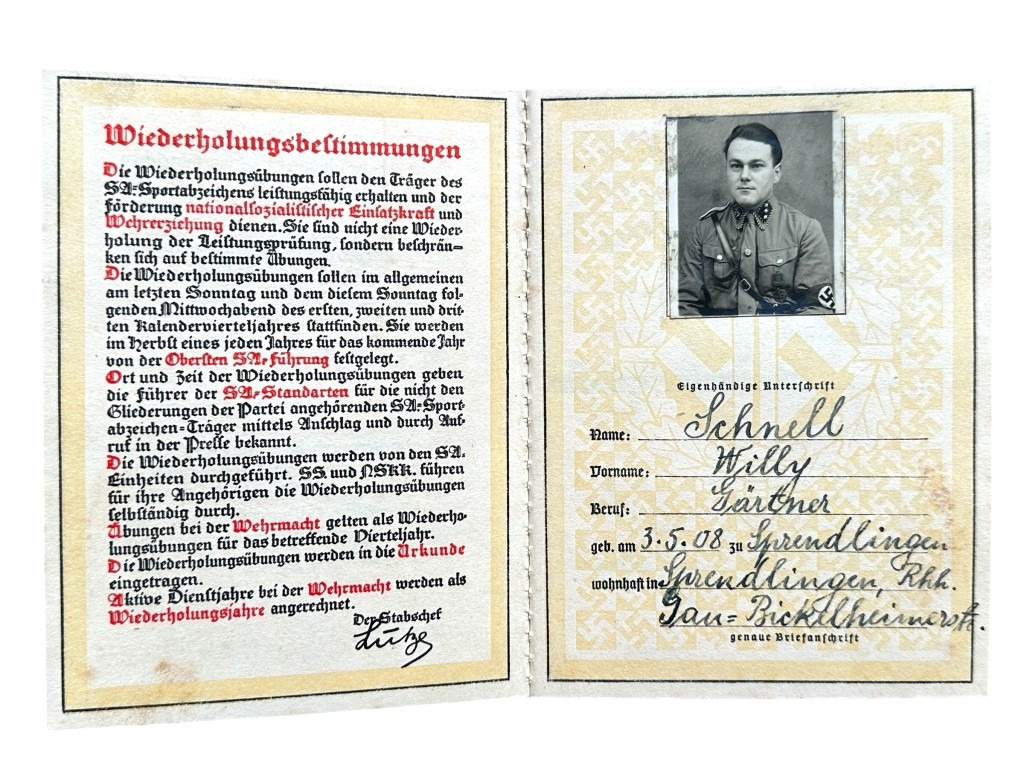 Wiederholungsbestimmungen
Die Wiederholungsübungen sollen den Träger des
SA=Sportabzeichens leistungsfähig erhalten und der
Förderung nationalsozialistischer Einsatzkraft und
Wehrerziehung dienen. Sie sind nicht eine Wieder-
holung der Leistungsprüfung, sondern beschrän-
ken sich auf bestimmte Übungen.
Die Wiederholungsübungen sollen im allgemeinen
am letzten Sonntag und dem diesem Sonntag fol-
genden Mittwochabend des ersten, zweiten und drit-
ten Kalendervierteljahres stattfinden. Sie werden
im Herbst eines jeden Jahres für das kommende Jahr
von der Obersten SA-Führung festgelegt.
Ort und Zeit der Wiederholungsübungen geben
die Führer der SA-Standarten für die nicht den
Gliederungen der Partei angehörenden SA=Sport-
abzeichen=Träger mittels Anschlag und durch Auf-
ruf in der Presse bekannt.
Die Wiederholungsübungen werden von den SA-
Einheiten durchgeführt. SS. und NSKK. führen
für ihre Angehörigen die Wiederholungsübungen
selbständig durch.
Übungen bei der Wehrmacht gelten als Wiederho-
lungsübungen für das betreffende Vierteljahr.
Die Wiederholungsübungen werden in die Urkunde
eingetragen.
Aktive Dienstjahre bei der Wehrmacht werden als
Wiederholungsjahre angerechnet.
Der Stabschef
Lutze
Eigenhändige Unterschrift
Name: Schnell
Vorname: Willy
Beruf: Gärtner
geb. am 3.5.08 zu Sprendlingen
wohnhaft in Sprendlingen, Rhh.
Gau=Bickelheimerstr.
genaue Briefanschrift